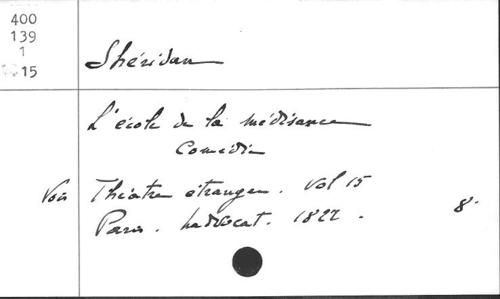 400
139
1
15
Shéridan
L'école de la médisance
Comédie
Voir Théatre étranger. Vol 15
Paris. Ladvocat. 1822. 8°